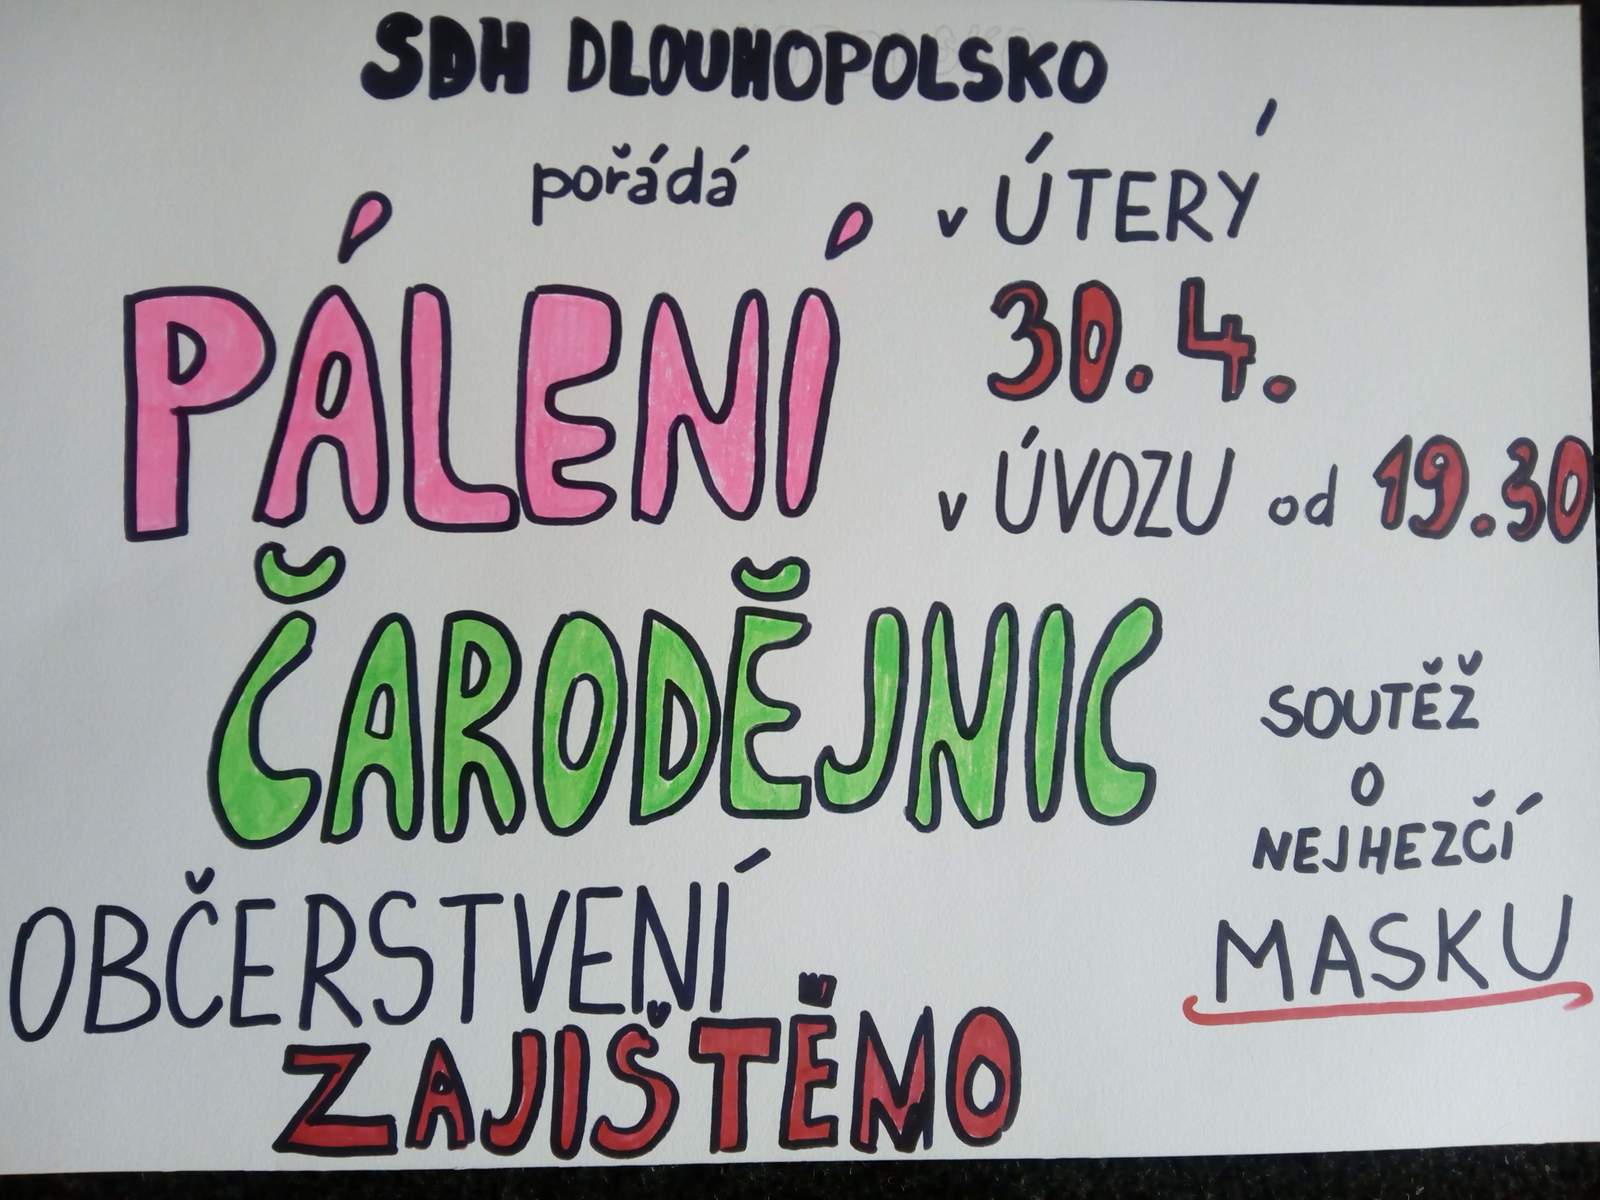 SDH DLOUHOPOLSKO
pořádá
PÁLENÍ
ČARODĚJNIC
v ÚTERÝ
30.4.
v ÚVOZU od 19.30
SOUTĚŽ
O
NEJHEZČÍ
MASKU
OBČERSTVENÍ
ZAJIŠTĚNO